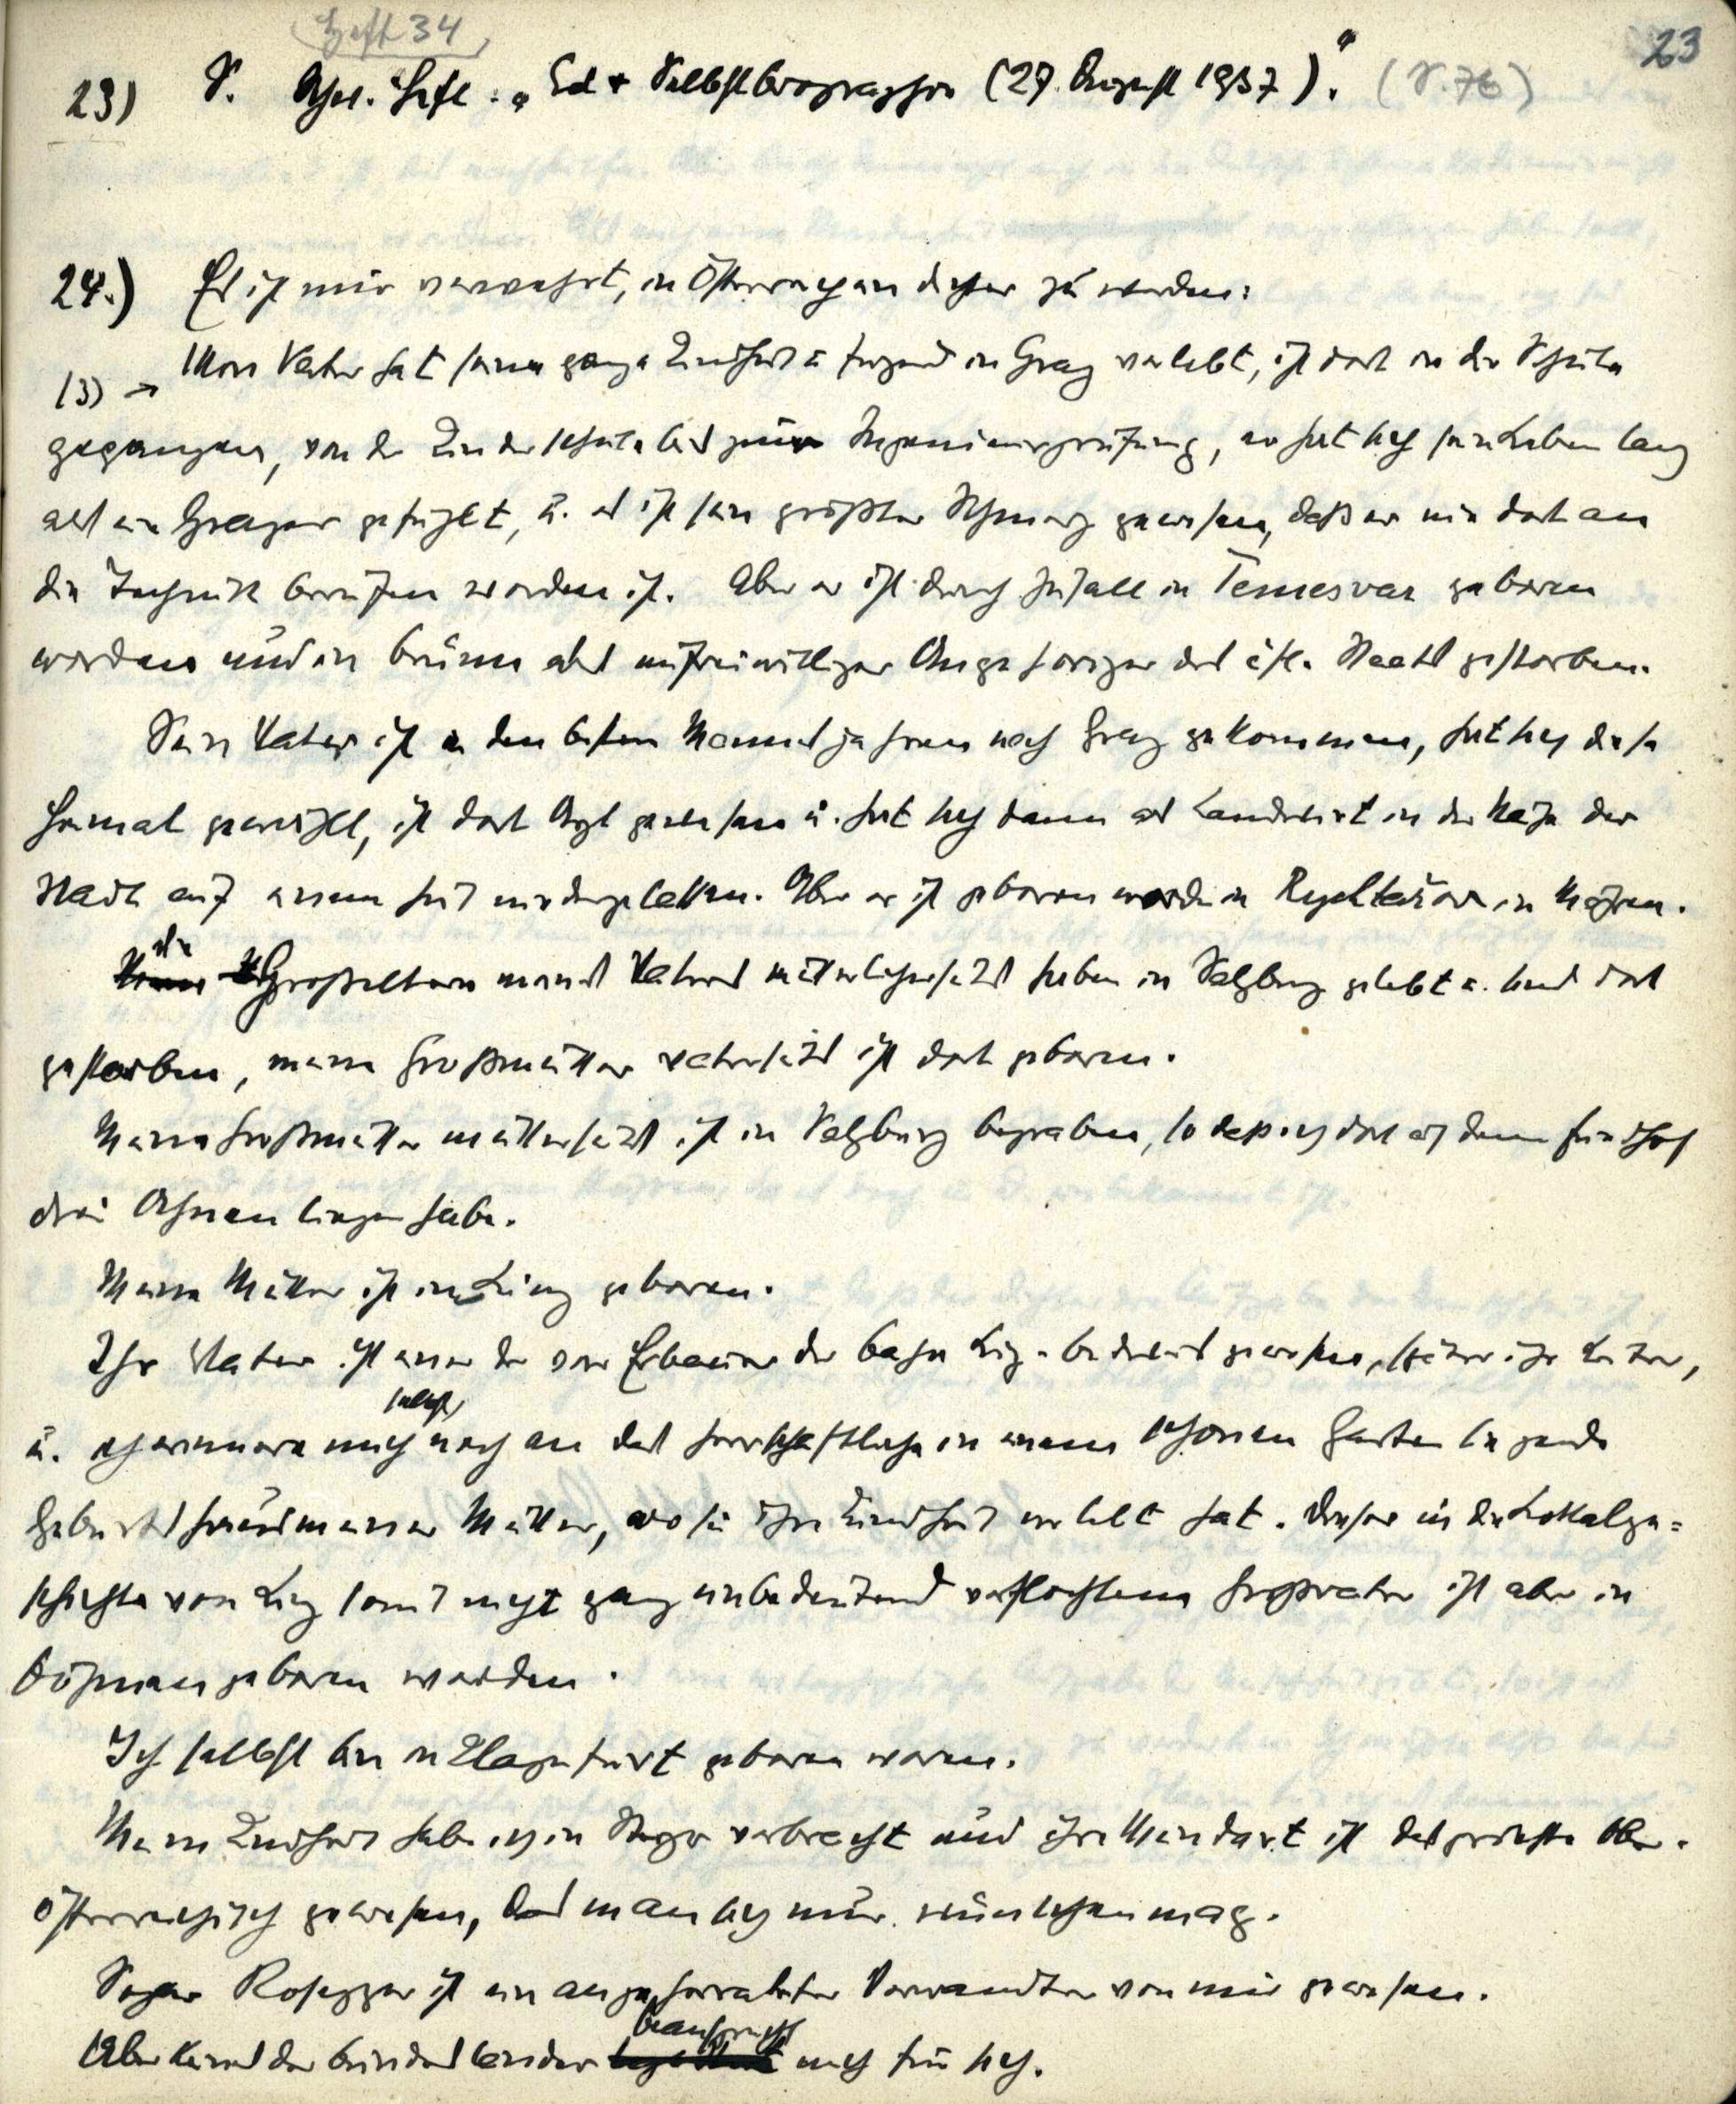 Heft 34
23
23) S. Schw. Heft: „Ed + Selbstbiographie (29. August 1937)." (S. 76)
24.) Es ist mir verwehrt, in Österreich ein Dichter zu werden:
13) → Mein Vater hat seine ganze Kindheit u Jugend in Graz verlebt, ist dort in die Schule
gegangen, von der Kinderschule bis zur Ingenieurprüfung, er hat sich sein Leben lang
als ein Grazer gefühlt, u. es ist sein größter Schmerz gewesen, daß er nie dort an
die Technik berufen worden ist. Aber er ist durch Zufall in Temesvar geboren
worden und in Brünn als unfreiwilliger Angehöriger des čsl. Staats gestorben.
Sein Vater ist in den besten Mannesjahren nach Graz gekommen, hat sich diese
Heimat gewählt, ist dort Arzt gewesen u. hat sich dann als Landwirt in der Nähe der
Stadt auf einem Gut niedergelassen. Aber er ist geboren worden in Rychtařov in Mähren.
Die Großeltern meines Vaters mütterlicherseits haben in Salzburg gelebt u. sind dort
gestorben, meine Großmutter vaterseits ist dort geboren.
Meine Großmutter mutterseits ist in Salzburg begraben, so daß ich dort auf dem Friedhof
drei Ahnen liegen habe.
Meine Mutter ist in Linz geboren.
Ihr Vater ist einer der vier Erbauer der Bahn Linz-Budweis gewesen, später ihr Leiter,
u. ich erinnere mich selbst noch an das herrschaftliche in einem schönen Garten liegende
Geburtshaus meiner Mutter, wo sie ihre Kindheit verlebt hat. Dieser in die Lokalge=
schichte von Linz somit nicht ganz unbedeutend verflochtene Großvater ist aber in
Böhmen geboren worden.
Ich selbst bin in Klagenfurt geboren woren.
Meine Kindheit habe ich in Steyr verbracht und ihre Mundart ist das reinste Ober-
österreichisch gewesen, das man sich nur wünschen mag.
Sogar Rosegger ist ein angeheirateter Verwandter von mir gewesen.
Aber keines der Bundesländer beansprucht mich für sich.